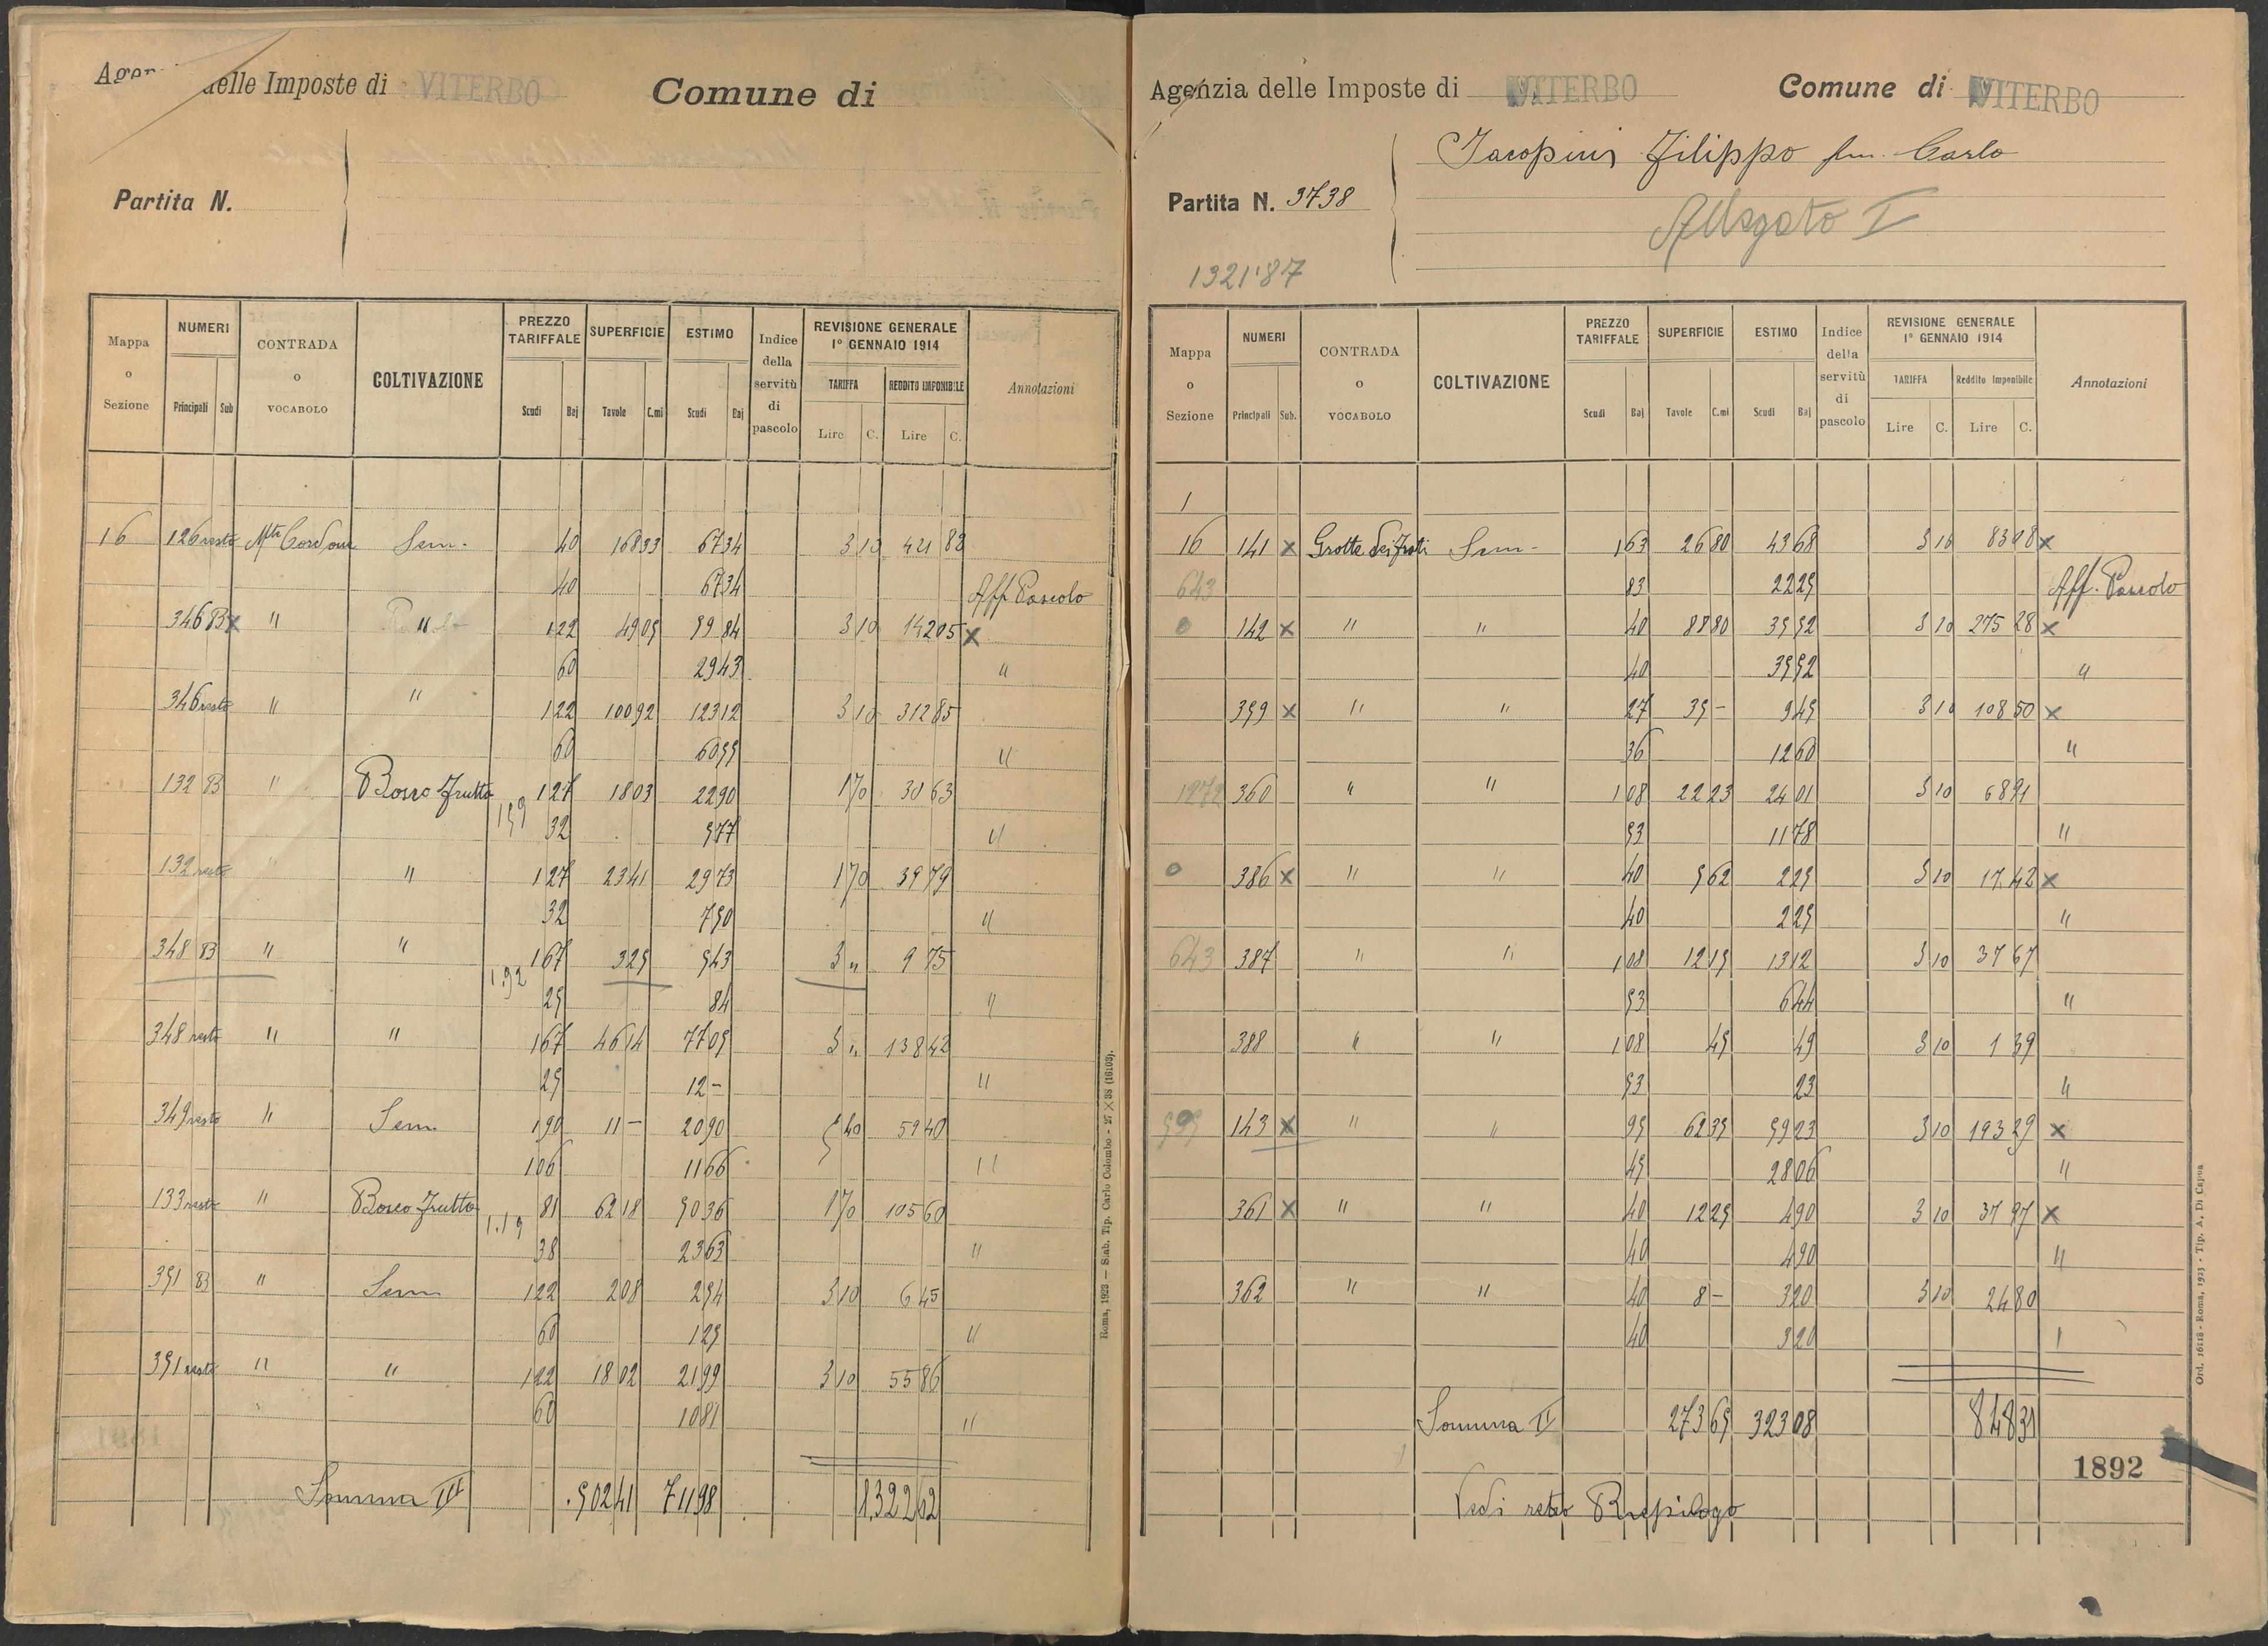 Agenzia delle Imposte di VITERBO Comune di
Partita N.
Mappa o Sezione | NUMERI Principali Sub | CONTRADA o VOCABOLO | COLTIVAZIONE | PREZZO TARIFFALE Scudi Baj | SUPERFICIE Tavole C.mi | ESTIMO Scudi Baj | Indice della servitù di pascolo | REVISIONE GENERALE 1° GENNAIO 1914 TARIFFA Lire C. REDDITO IMPONIBILE Lire C. | Annotazioni
16 126 resto Mte Cordone Sem. 40 168 33 67 34 3 10 421 83
40 67 34 Aff. Pascolo
346 B x " " 1 22 49 05 59 84 3 10 142 05 x
60 29 43 "
346 resto " " 1 22 100 92 123 12 3 10 312 85
60 60 55 "
132 B " Bosco frutto 1 27 18 03 22 90 1 70 30 63
1 59 32 5 77 "
132 resto " " 1 27 23 41 29 73 1 70 39 79
32 7 50 "
348 B " " 1 67 3 25 5 43 3 " 9 75
1.92 25 84 "
348 resto " " 1 67 46 14 77 05 3 " 138 42
25 12 - "
349 resto " Sem. 1 90 11 - 20 90 5 40 59 40
1 06 11 66 "
133 resto " Bosco frutto 81 62 18 50 36 1 70 105 60
1.19 38 23 63 "
351 B " Sem 1 22 2 08 2 54 3 10 6 45
60 1 25 "
351 resto " " 1 22 18 02 21 99 3 10 55 86
60 10 81 "
Somma III 502 41 711 98 1322 62
Roma, 1923 — Stab. Tip. Carlo Colombo - 27 X 38 (16103).
Agenzia delle Imposte di VITERBO Comune di VITERBO
Jacopini Filippo fu Carlo
Partita N. 3738
Allegato I
1321'87
Mappa o Sezione | NUMERI Principali Sub. | CONTRADA o VOCABOLO | COLTIVAZIONE | PREZZO TARIFFALE Scudi Baj | SUPERFICIE Tavole C.mi | ESTIMO Scudi Baj | Indice della servitù di pascolo | REVISIONE GENERALE 1° GENNAIO 1914 TARIFFA Lire C. Reddito Imponibile Lire C. | Annotazioni
1
16 141 x Grotte dei Frati Sem. 1 63 26 80 43 68 3 10 83 08 x
643 83 22 25 Aff. Pascolo
0 142 x " " 40 88 80 35 52 3 10 275 28 x
40 35 52 "
359 x " " 27 35 - 9 45 3 10 108 50 x
36 12 60 "
1272 360 " " 1 08 22 23 24 01 3 10 68 91
53 11 78 "
0 386 x " " 40 5 62 2 25 3 10 17 42 x
40 2 25 "
643 387 " " 1 08 12 15 13 12 3 10 37 67
53 6 44 "
388 " " 1 08 45 49 3 10 1 39
53 23 "
143 x " " 95 62 35 59 23 3 10 193 29 x
45 28 06 "
361 x " " 40 12 25 4 90 3 10 37 97 x
40 4 90 "
362 " " 40 8 - 3 20 3 10 24 80
40 3 20
Somma II 273 65 323 08 848 31
1892
Vedi retro Riepilogo
Ord. 16118 - Roma, 1923 - Tip. A. Di Capua